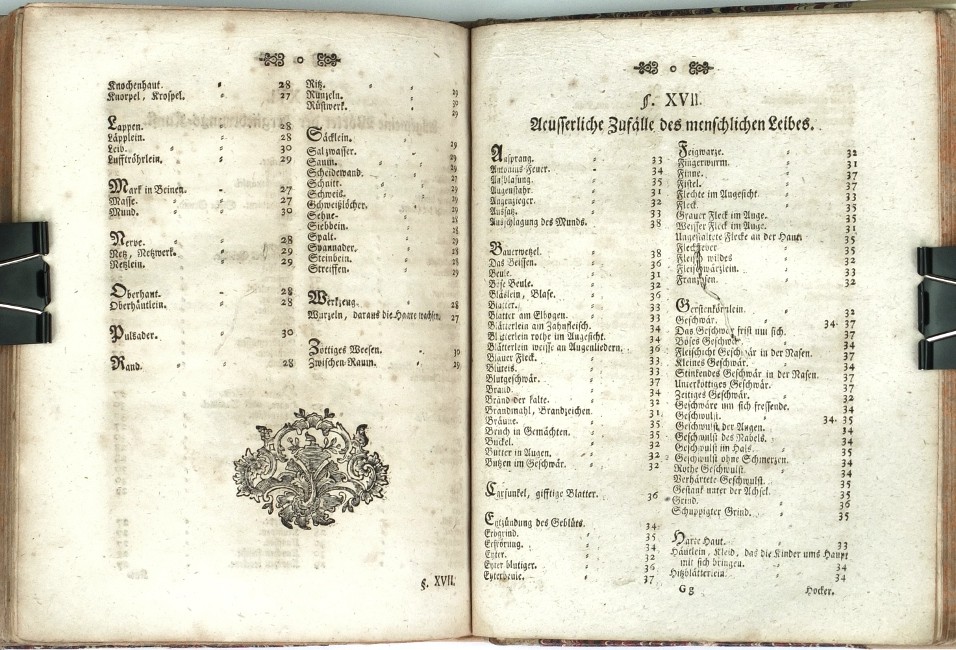 Knochenhaut. 28
Knorpel, Krospel. 27
Lappen. 28
Läpplein. 28
Leib. 30
Lufftröhrlein. 29
Mark in Beinen. 27
Masse. 27
Mund. 30
Nerve. 28
Netz, Netzwerk. 29
Netzlein. 29
Oberhaut. 28
Oberhäutlein. 28
Pulsader. 30
Rand. 28
Ritz. 29
Runzeln. 30
Rüstwerk. 29
Säcklein. 29
Salzwasser.
Saum. 29
Scheidewand. 29
Schnitt. 29
Schweis. 29
Schweißlöcher.
Sehne.
Siebbein.
Spalt.
Spannader.
Steinbein.
Streiffen. 29
Werkzeug. 28
Wurzeln, daraus die Haare wachsen. 27
Zottiges Weesen. 30
Zwischen-Raum. 29
§. XVII.
§. XVII.
Aeusserliche Zufälle des menschlichen Leibes.
Ansprang. 33
Antonius Feuer. 34
Aufblasung. 35
Augenstahr. 31
Augenzieger. 32
Aussatz. 33
Ausschlagung des Munds. 38
Bauerwetzel. 38
Das Beissen. 36
Beule. 31
Böse Beule. 32
Bläslein, Blase. 36
Blatter. 33
Blatter am Elbogen. 33
Blätterlein am Zahnfleisch. 34
Blätterlein rothe im Angesicht. 34
Blätterlein weisse an Augenliedern. 36
Blauer Fleck. 33
Bluteis. 33
Blutgeschwär. 37
Brand. 34
Brand der kalte. 32
Brandmahl, Brandzeichen. 31
Bräune. 35
Bruch in Gemächten. 35
Buckel. 32
Butter in Augen. 32
Butzen im Geschwär. 32
Carfunkel, gifftige Blatter. 36
Entzündung des Geblüts. 34
Erbgrind. 35
Erfrörung. 34
Eyter. 32
Eyter blutiger. 36
Eyterbeule. 37
Feigwarze. 32
Fingerwurm. 31
Finne. 37
Fistel. 37
Flechte im Angesicht. 33
Fleck. 35
Grauer Fleck im Auge. 35
Weisser Fleck im Auge. 31
Ungestaltete Flecke an der Haut. 35
Fleckfieber 35
Fleisch wildes 32
Fleischwärzlein. 33
Franzosen. 32
Gerstenkörnlein. 32
Geschwär. 34. 37
Das Geschwär frist um sich. 34
Böses Geschwär. 37
Fleischicht Geschwär in der Nasen. 34
Kleines Geschwär. 37
Stinkendes Geschwär in der Nasen. 34
Unterköttiges Geschwär. 37
Zeitiges Geschwär. 37
Geschwäre um sich fressende. 32
Geschwulst. 34. 35
Geschwulst der Augen. 34
Geschwulst des Nabels. 34
Geschwulst im Hals.
Geschwulst ohne Schmerzen.
Rothe Geschwulst. 34
Verhärtete Geschwulst. 34
Gestank unter der Achsel. 35
Grind. 36
Schuppigter Grind. 35
Harte Haut. 33
Häutlein, Kleid, das die Kinder ums Haupt
mit sich bringen. 34
Hitzblätterlein. 34
Gg Hocker.